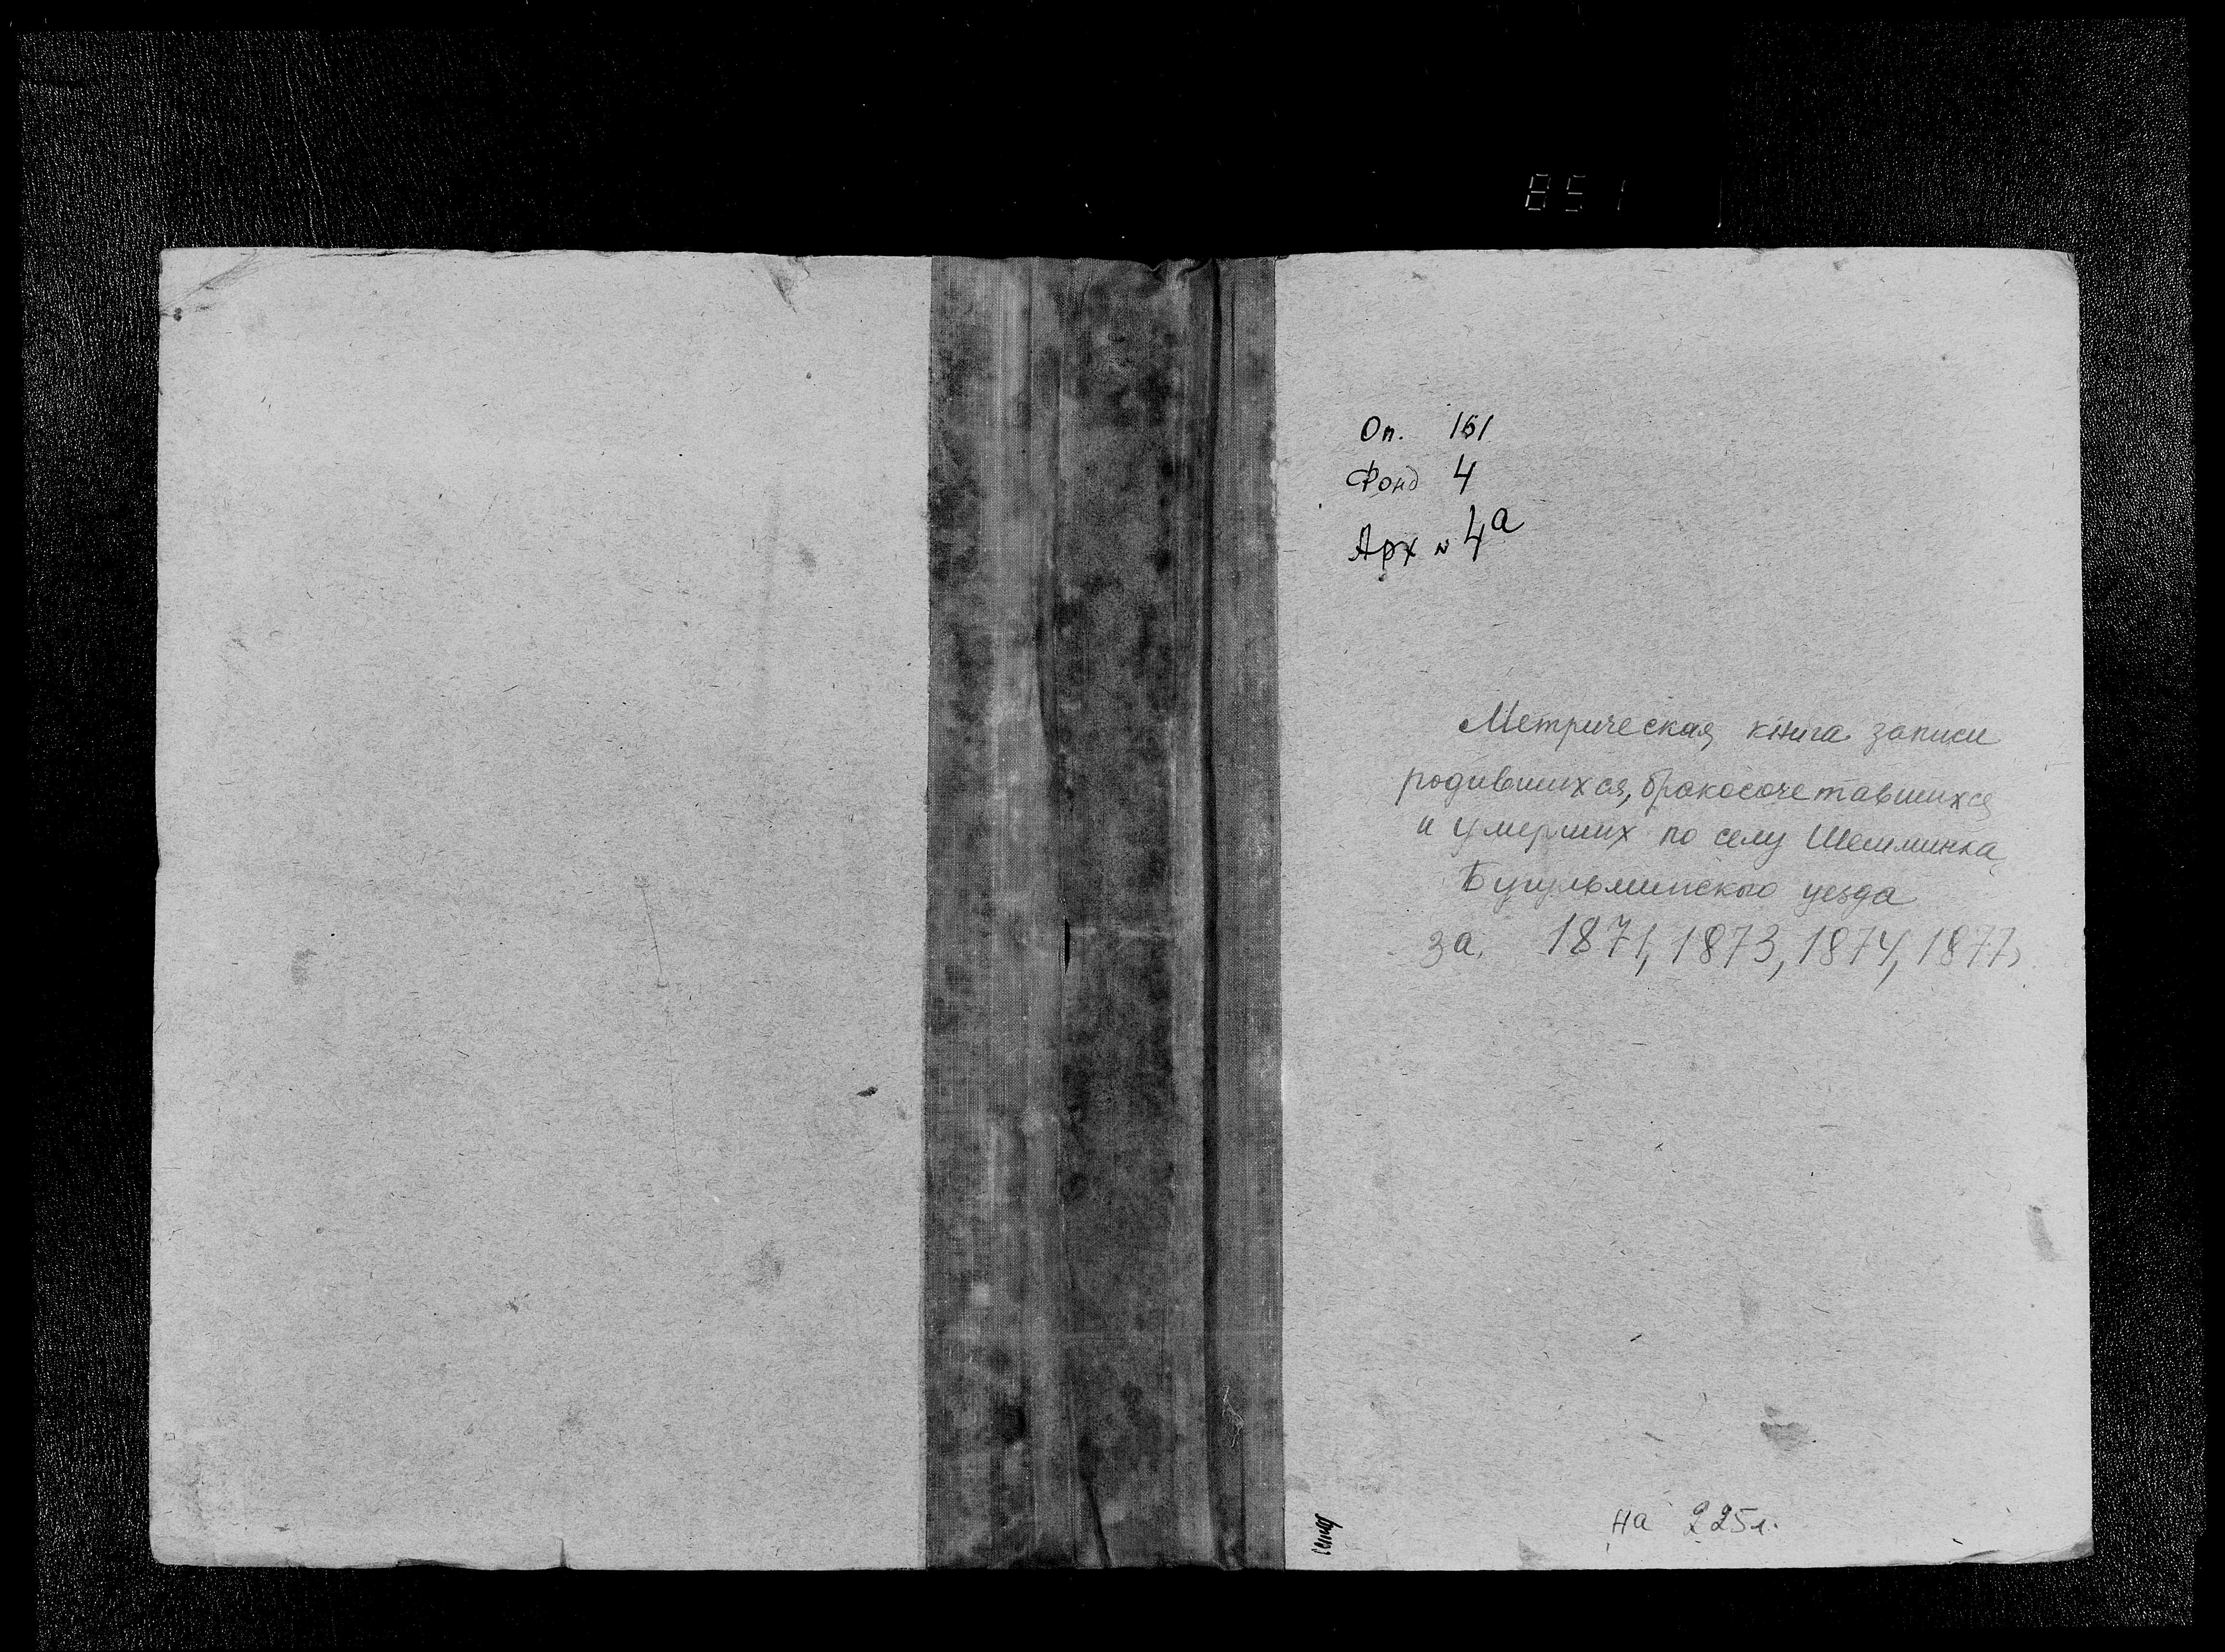 851
Оп. 161
Фонд 4
Арх № 4а
Метрическая книга записи
родившихся, бракосочетавшихся
и умерших по селу Шешминка,
Бугульминского уезда
за 1871, 1873, 1874, 1877
на 225 л.